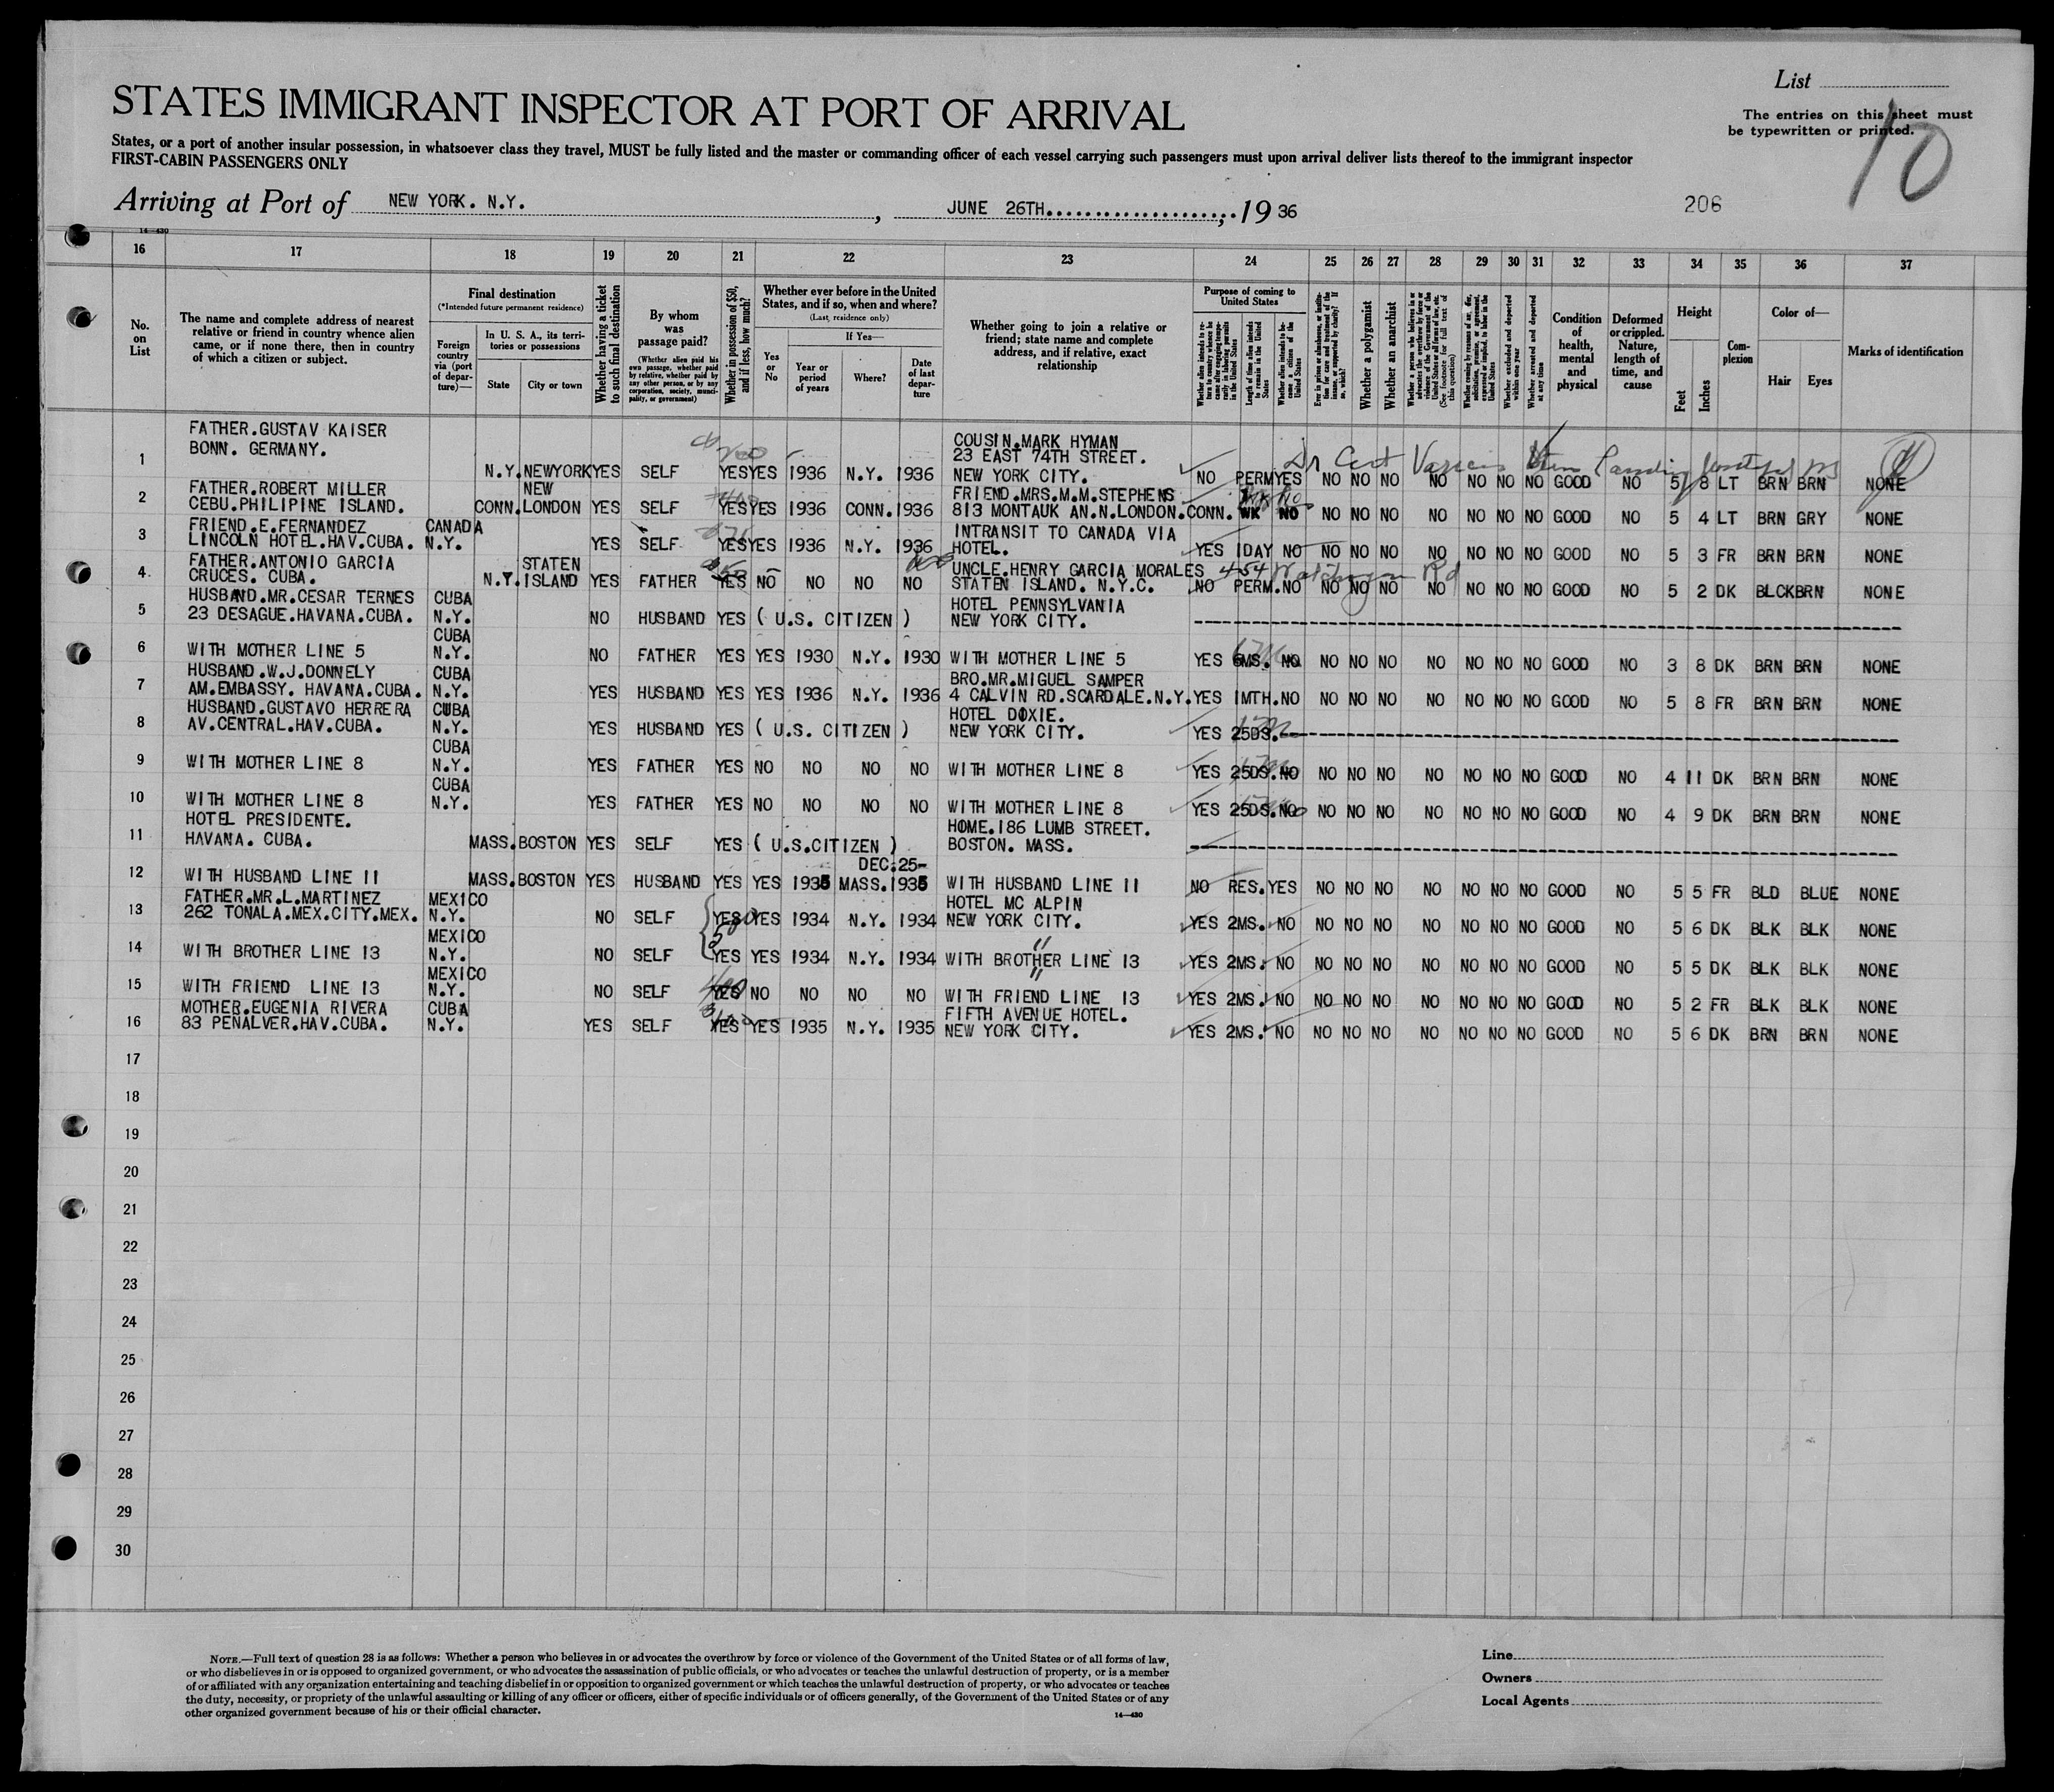 List
STATES IMMIGRANT INSPECTOR AT PORT OF ARRIVAL
The entries on this sheet must
be typewritten or printed.
10
States, or a port of another insular possession, in whatsoever class they travel, MUST be fully listed and the master or commanding officer of each vessel carrying such passengers must upon arrival deliver lists thereof to the immigrant inspector
FIRST-CABIN PASSENGERS ONLY
Arriving at Port of NEW YORK. N.Y. , JUNE 26TH, 1936
206
14—430
16 17 18 19 20 21 22 23 24 25 26 27 28 29 30 31 32 33 34 35 36 37
No. on List
The name and complete address of nearest relative or friend in country whence alien came, or if none there, then in country of which a citizen or subject.
Final destination
(*Intended future permanent residence)
Foreign country via (port of departure)—
In U. S. A., its territories or possessions
State
City or town
Whether having a ticket to such final destination
By whom was passage paid?
(Whether alien paid his own passage, whether paid by relative, whether paid by any other person, or by any corporation, society, municipality, or government)
Whether in possession of $50, and if less, how much?
Whether ever before in the United States, and if so, when and where?
(Last residence only)
If Yes—
Yes or No
Year or period of years
Where?
Date of last departure
Whether going to join a relative or friend; state name and complete address, and if relative, exact relationship
Purpose of coming to United States
Length of time alien intends to remain in the United States
Whether alien intends to become a citizen of the United States
Whether a polygamist
Whether an anarchist
Whether excluded and deported within one year
Whether arrested and deported at any time
Condition of health, mental and physical
Deformed or crippled. Nature, length of time, and cause
Height
Feet
Inches
Complexion
Color of—
Hair
Eyes
Marks of identification
1 FATHER.GUSTAV KAISER
BONN. GERMANY. N.Y. NEWYORK YES SELF YES YES 1936 N.Y. 1936 COUSIN.MARK HYMAN
23 EAST 74TH STREET.
NEW YORK CITY. NO PERM YES NO NO NO NO NO NO NO GOOD NO 5 8 LT BRN BRN NONE
2 FATHER.ROBERT MILLER
CEBU.PHILIPINE ISLAND. CONN. NEW LONDON YES SELF YES YES 1936 CONN. 1936 FRIEND.MRS.M.M.STEPHENS
813 MONTAUK AN.N.LONDON.CONN. WK NO NO NO NO NO NO NO NO GOOD NO 5 4 LT BRN GRY NONE
3 FRIEND.E.FERNANDEZ
LINCOLN HOTEL.HAV.CUBA. CANADA N.Y. YES SELF YES YES 1936 N.Y. 1936 INTRANSIT TO CANADA VIA
HOTEL. YES 1DAY NO NO NO NO NO NO NO NO GOOD NO 5 3 FR BRN BRN NONE
4 FATHER.ANTONIO GARCIA
CRUCES. CUBA. N.Y. STATEN ISLAND YES FATHER YES NO NO NO NO UNCLE.HENRY GARCIA MORALES 454
STATEN ISLAND. N.Y.C. NO PERM. NO NO NO NO NO NO NO NO GOOD NO 5 2 DK BLCK BRN NONE
5 HUSBAND.MR.CESAR TERNES
23 DESAGUE.HAVANA.CUBA. CUBA N.Y. NO HUSBAND YES ( U.S. CITIZEN ) HOTEL PENNSYLVANIA
NEW YORK CITY.
6 WITH MOTHER LINE 5 CUBA N.Y. NO FATHER YES YES 1930 N.Y. 1930 WITH MOTHER LINE 5 YES 6MS. NO NO NO NO NO NO NO NO GOOD NO 3 8 DK BRN BRN NONE
7 HUSBAND.W.J.DONNELY
AM.EMBASSY. HAVANA.CUBA. CUBA N.Y. YES HUSBAND YES YES 1936 N.Y. 1936 BRO.MR.MIGUEL SAMPER
4 CALVIN RD.SCARDALE.N.Y. YES 1MTH. NO NO NO NO NO NO NO NO GOOD NO 5 8 FR BRN BRN NONE
8 HUSBAND.GUSTAVO HERRERA
AV.CENTRAL.HAV.CUBA. CUBA N.Y. YES HUSBAND YES ( U.S. CITIZEN ) HOTEL DIXIE.
NEW YORK CITY. YES 25DS.
9 WITH MOTHER LINE 8 CUBA N.Y. YES FATHER YES NO NO NO NO WITH MOTHER LINE 8 YES 25DS. NO NO NO NO NO NO NO NO GOOD NO 4 11 DK BRN BRN NONE
10 WITH MOTHER LINE 8 CUBA N.Y. YES FATHER YES NO NO NO NO WITH MOTHER LINE 8 YES 25DS. NO NO NO NO NO NO NO NO GOOD NO 4 9 DK BRN BRN NONE
11 HOTEL PRESIDENTE.
HAVANA. CUBA. MASS. BOSTON YES SELF YES ( U.S.CITIZEN ) HOME.186 LUMB STREET.
BOSTON. MASS.
12 WITH HUSBAND LINE 11 MASS. BOSTON YES HUSBAND YES YES 1935 MASS. DEC.25-1935 WITH HUSBAND LINE 11 NO RES. YES NO NO NO NO NO NO NO GOOD NO 5 5 FR BLD BLUE NONE
13 FATHER.MR.L.MARTINEZ
262 TONALA.MEX.CITY.MEX. MEXICO N.Y. NO SELF YES YES 1934 N.Y. 1934 HOTEL MC ALPIN
NEW YORK CITY. YES 2MS. NO NO NO NO NO NO NO NO GOOD NO 5 6 DK BLK BLK NONE
14 WITH BROTHER LINE 13 MEXICO N.Y. NO SELF YES YES 1934 N.Y. 1934 WITH BROTHER LINE 13 YES 2MS. NO NO NO NO NO NO NO NO GOOD NO 5 5 DK BLK BLK NONE
15 WITH FRIEND LINE 13 MEXICO N.Y. NO SELF YES NO NO NO NO WITH FRIEND LINE 13 YES 2MS. NO NO NO NO NO NO NO NO GOOD NO 5 2 FR BLK BLK NONE
16 MOTHER.EUGENIA RIVERA
83 PENALVER.HAV.CUBA. CUBA N.Y. YES SELF YES YES 1935 N.Y. 1935 FIFTH AVENUE HOTEL.
NEW YORK CITY. YES 2MS. NO NO NO NO NO NO NO NO GOOD NO 5 6 DK BRN BRN NONE
17
18
19
20
21
22
23
24
25
26
27
28
29
30
NOTE.—Full text of question 28 is as follows: Whether a person who believes in or advocates the overthrow by force or violence of the Government of the United States or of all forms of law,
or who disbelieves in or is opposed to organized government, or who advocates the assassination of public officials, or who advocates or teaches the unlawful destruction of property, or is a member
of or affiliated with any organization entertaining and teaching disbelief in or opposition to organized government or which teaches the unlawful destruction of property, or who advocates or teaches
the duty, necessity, or propriety of the unlawful assaulting or killing of any officer or officers, either of specific individuals or of officers generally, of the Government of the United States or of any
other organized government because of his or their official character.
14—430
Line
Owners
Local Agents